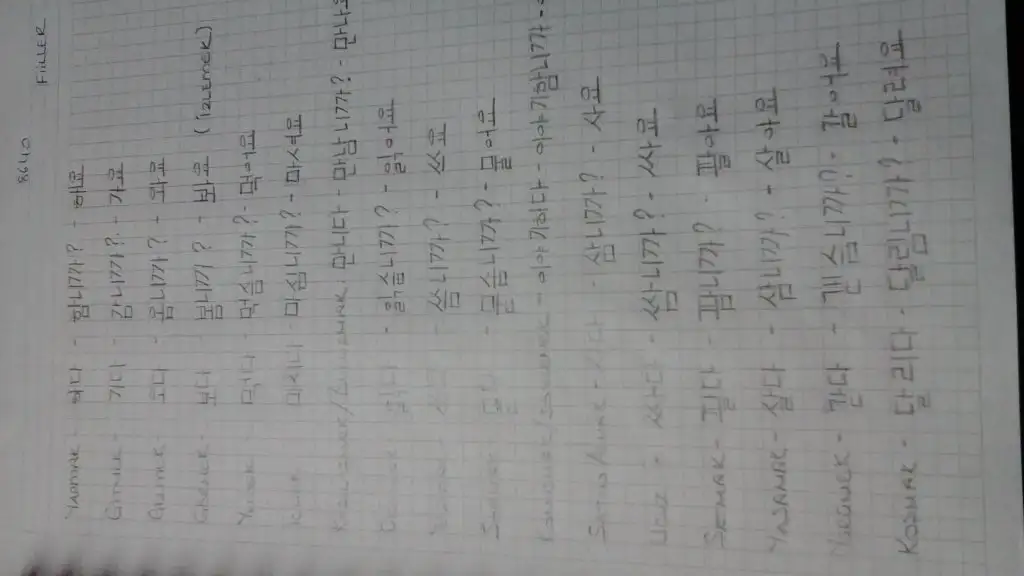 8640
FiiLLER
YAPMAK - 하다 - 합니까? - 해요
GiTMEK - 가다 - 감니까? - 가요
GELMEK - 오다 - 옴니까? - 와요
GöRMEK - 보다 - 봄니까? - 봐요 (iZLEMEK)
YEMEK - 먹다 - 먹슴니까? - 먹어요
마시다 - 마심니까? - 마셔요
만나다 - 만남니까? - 만나요
읽다 - 읽슴니까? - 읽어요
씀니까? - 쓰요
묻슴니까? - 물어요
KONUŞMAK/SOHBET - 이야기하다 - 이야기함니까? -
SATIN ALMAK - 사다 - 삼니까? - 사요
UCUZ - 싸다 - 쌈니까? - 싸요
SATMAK - 팔다 - 팜니까? - 팔아요
YAŞAMAK - 살다 - 삼니까? - 살아요
YÜRÜMEK - 걷다 - 걷슴니까? - 걸어요
KOŞMAK - 달리다 - 달림니까? - 달려요